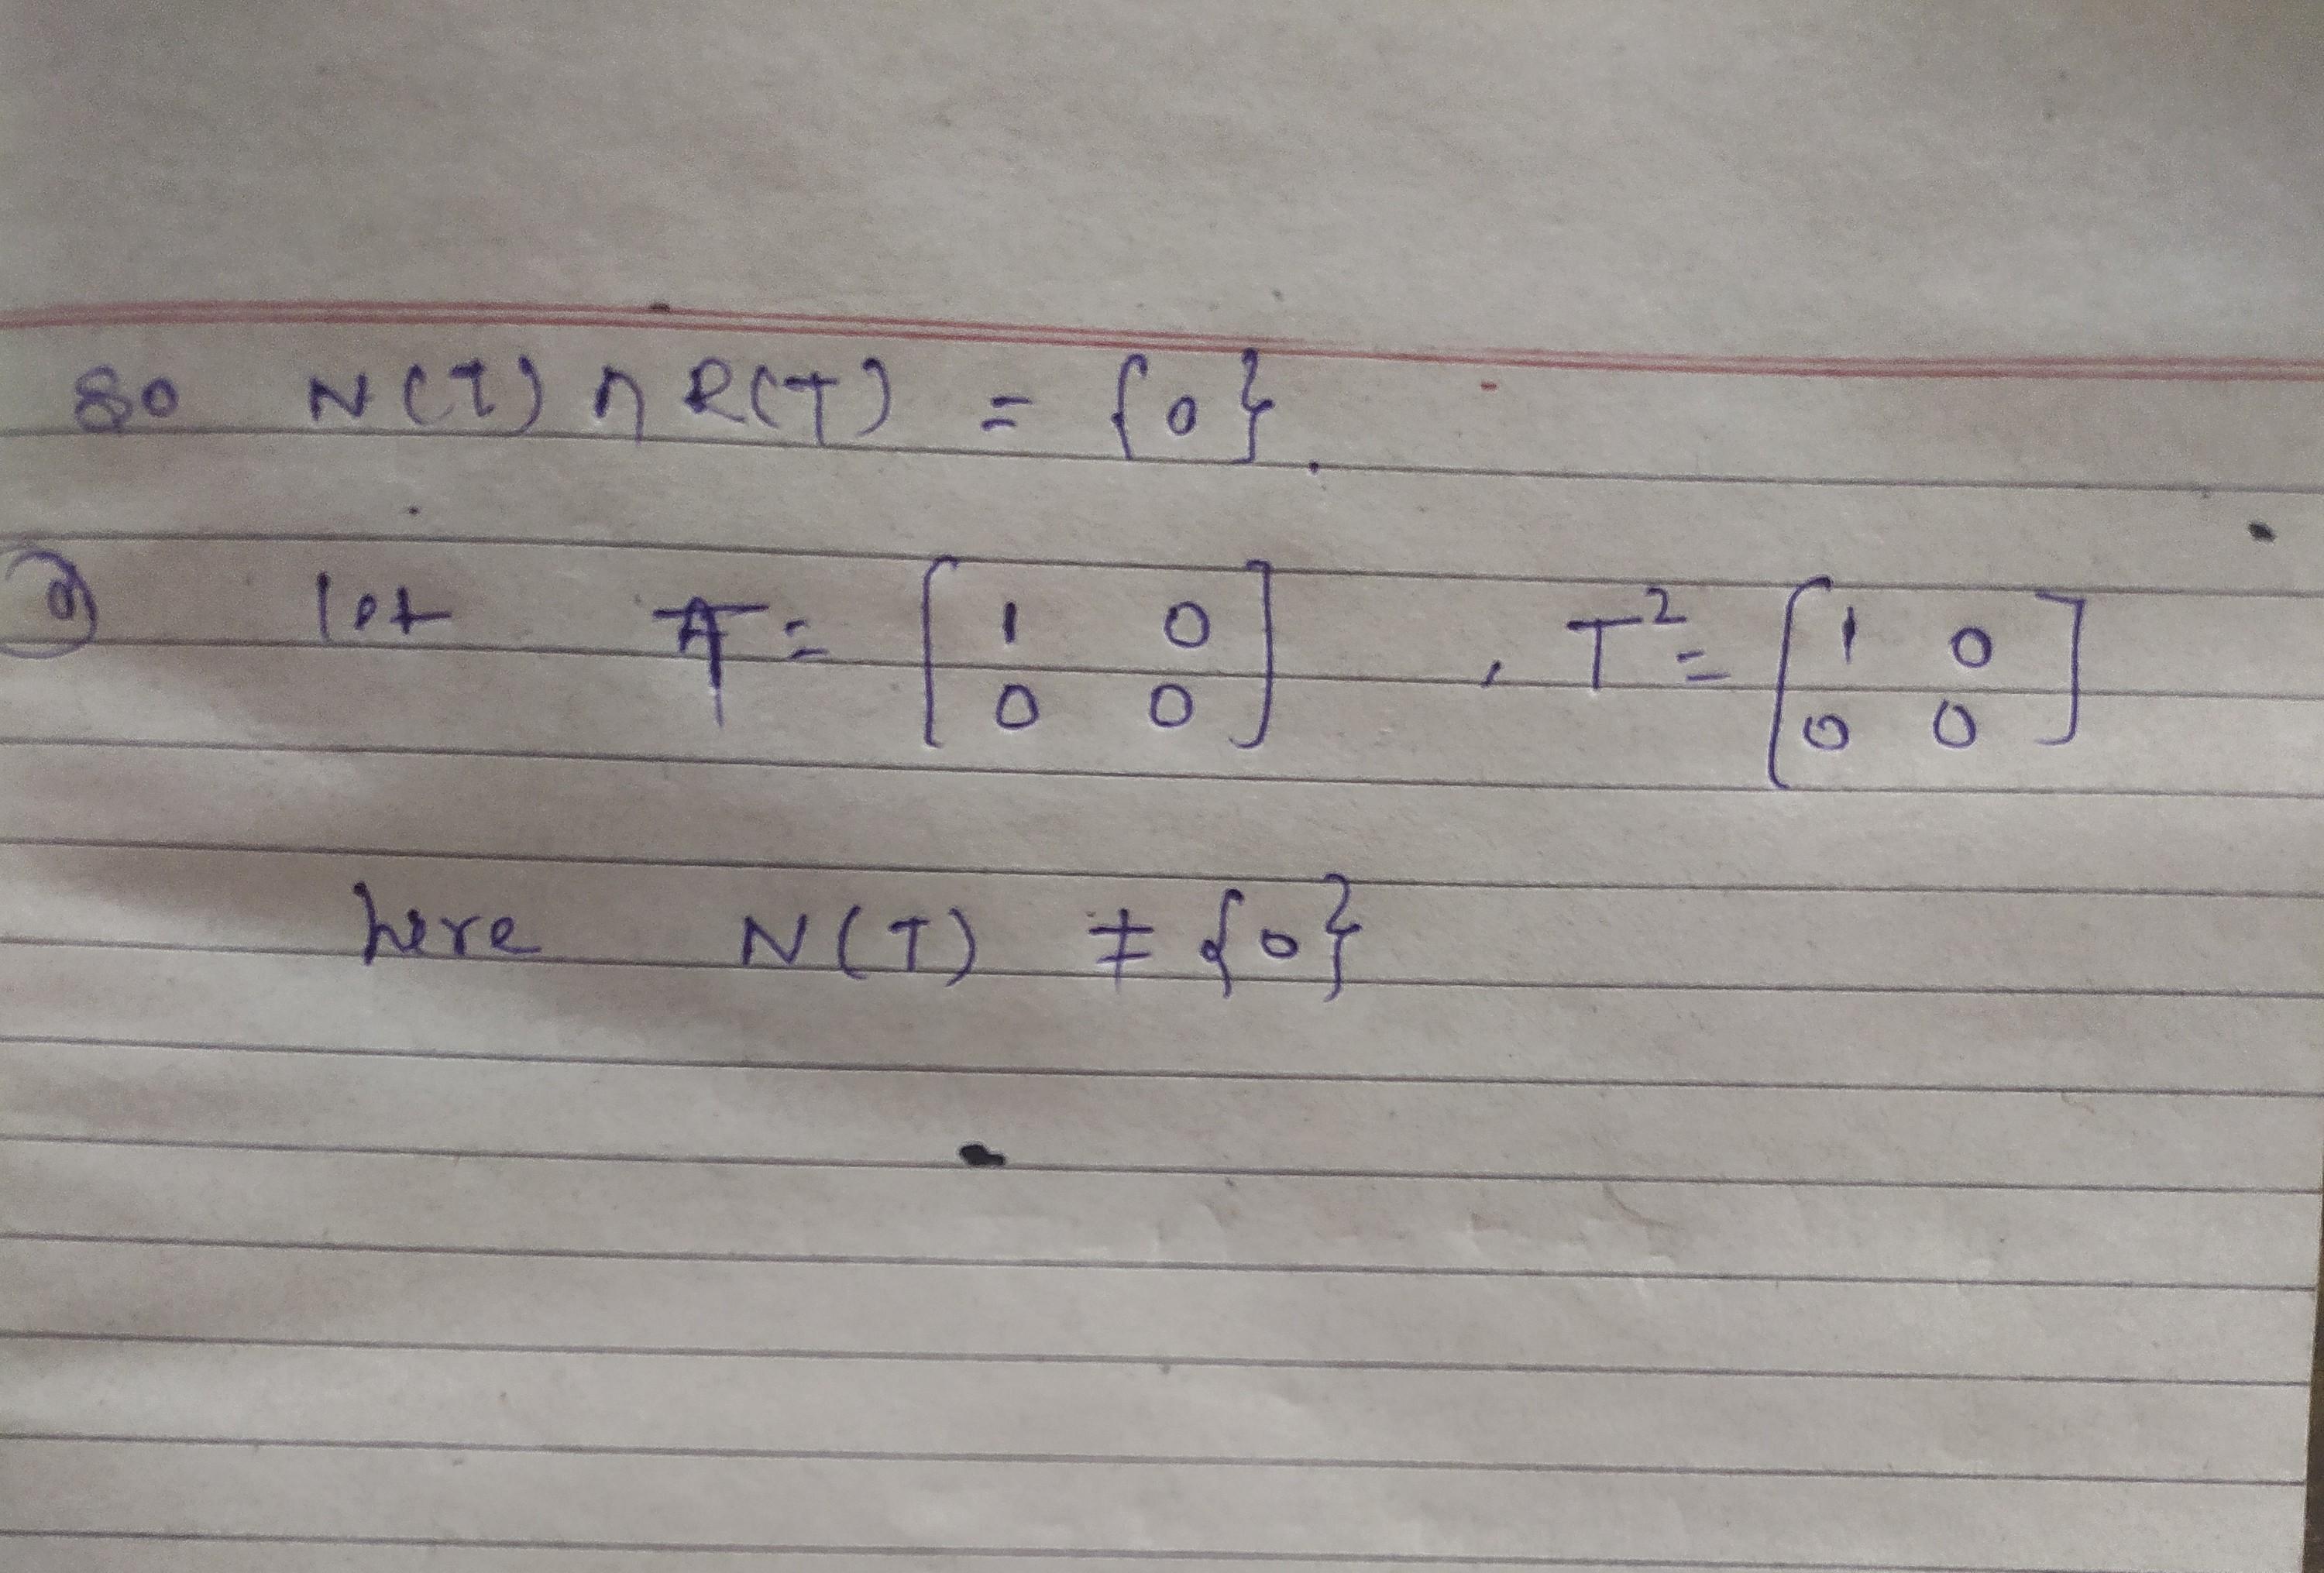 so N(T) ∩ R(T) = {0}.
let T = [1 0; 0 0] , T² = [1 0; 0 0]
here N(T) ≠ {0}